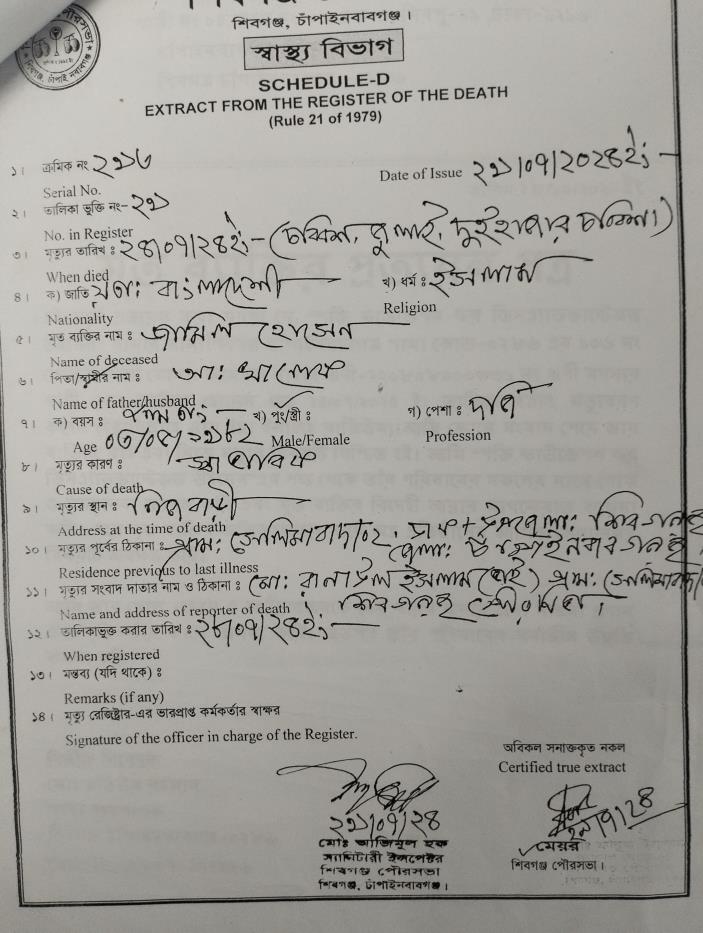 শিবগঞ্জ, চাঁপাইনবাবগঞ্জ।
স্বাস্থ্য বিভাগ
SCHEDULE-D
EXTRACT FROM THE REGISTER OF THE DEATH
(Rule 21 of 1979)
১। ক্রমিক নং
Date of Issue
Serial No.
২। তালিকা ভুক্তি নং- ২৯
No. in Register
৩। মৃত্যুর তারিখ ঃ ২৪/০৭/২৪ইং- (চব্বিশ, জুলাই, দুইহাজার চব্বিশ)
When died
৪। ক) জাতি বাংলাদেশী খ) ধর্ম ঃ ইসলাম
Nationality Religion
৫। মৃত ব্যক্তির নাম ঃ জামিল হোসেন
Name of deceased
৬। পিতা/স্বামীর নাম ঃ আ: খালেক
Name of father/husband
৭। ক) বয়স ঃ খ) পুং/স্ত্রী ঃ গ) পেশা ঃ দর্জি
Age Male/Female Profession
৮। মৃত্যুর কারণ ঃ স্বাভাবিক
Cause of death
৯। মৃত্যুর স্থান ঃ নিজ বাড়ী
Address at the time of death
১০। মৃত্যুর পূর্বের ঠিকানা ঃ গ্রাম: সেলিমাবাদ উপজেলা: শিবগঞ্জ
জেলা: চাঁপাইনবাবগঞ্জ
Residence previous to last illness
১১। মৃত্যুর সংবাদ দাতার নাম ও ঠিকানা ঃ মো: ইসলাম (ভাই) গ্রাম: সেলিমাবাদ
শিবগঞ্জ পৌরসভা।
Name and address of reporter of death
১২। তালিকাভুক্ত করার তারিখ ঃ
When registered
১৩। মন্তব্য (যদি থাকে) ঃ
Remarks (if any)
১৪। মৃত্যু রেজিষ্টার-এর ভারপ্রাপ্ত কর্মকর্তার স্বাক্ষর
Signature of the officer in charge of the Register.
অবিকল সনাক্তকৃত নকল
Certified true extract
২৯/০৭/২৪
মোঃ আজিমুল হক
স্যানিটারী ইন্সপেক্টর
শিবগঞ্জ পৌরসভা
শিবগঞ্জ, চাঁপাইনবাবগঞ্জ।
মেয়র
শিবগঞ্জ পৌরসভা।